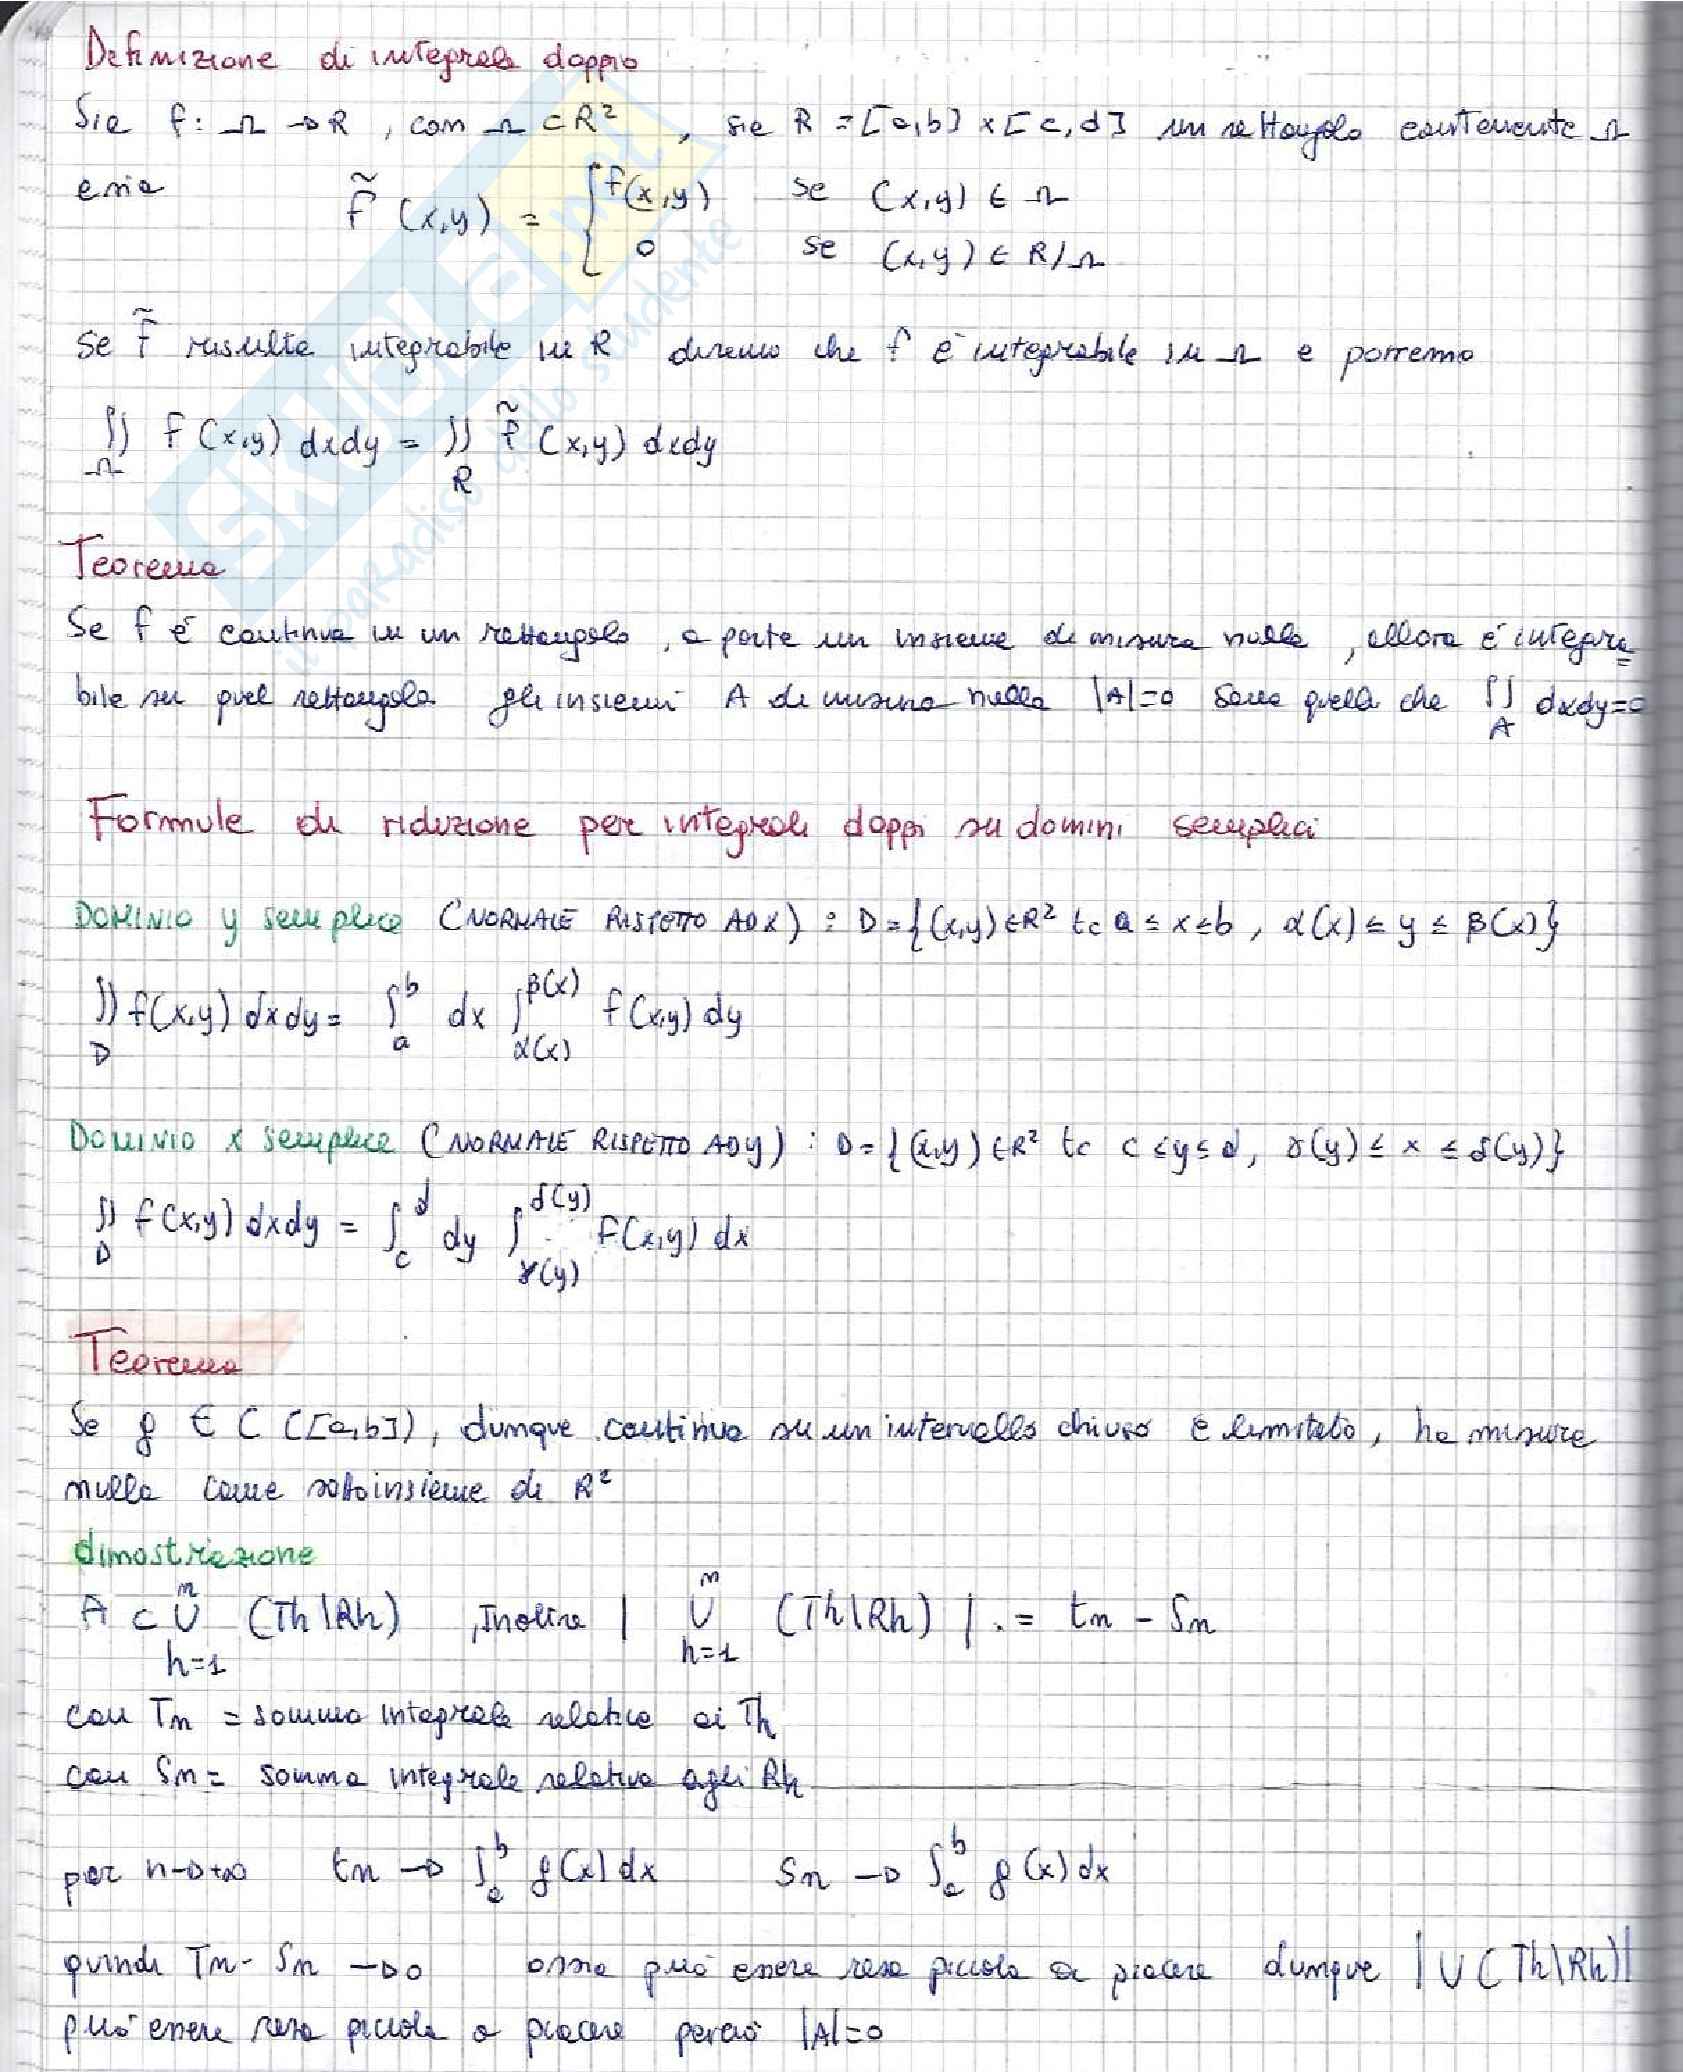 Definizione di integrale doppio
Sia f: Ω → R , con Ω ⊂ R² , sia R = [a,b] × [c,d] un rettangolo contenente Ω
e sia f̃ (x,y) = { f(x,y) se (x,y) ∈ Ω
0 se (x,y) ∈ R/Ω
Se f̃ risulta integrabile in R diremo che f è integrabile in Ω e porremo
∬_Ω f(x,y) dxdy = ∬_R f̃ (x,y) dxdy
Teorema
Se f è continua in un rettangolo, a parte un insieme di misura nulla, allora è integra
bile su quel rettangolo gli insiemi A di misura nulla |A|=0 sono quelli che ∬_A dxdy=0
Formule di riduzione per integrali doppi su domini semplici
DOMINIO y semplice (NORMALE RISPETTO AD X) : D={(x,y)∈R² tc a ≤ x ≤ b , α(x) ≤ y ≤ β(x)}
∬_D f(x,y) dxdy = ∫_a^b dx ∫_α(x)^β(x) f(x,y) dy
DOMINIO x semplice (NORMALE RISPETTO AD y) : D={(x,y)∈R² tc c ≤ y ≤ d, γ(y) ≤ x ≤ δ(y)}
∬_D f(x,y) dxdy = ∫_c^d dy ∫_γ(y)^δ(y) f(x,y) dx
Teorema
Se g ∈ C ([a,b]), dunque continua su un intervallo chiuso e limitato, ha misura
nulla come sottoinsieme di R²
dimostrazione
A ⊂ ∪_{h=1}^n (Th\Rh) , Inoltre | ∪_{h=1}^n (Th\Rh) | . = tn - Sn
con Tn = somma integrale relativa ai Th
con Sn = somma integrale relativa agli Rh
per n→+∞ tn → ∫_a^b g(x) dx Sn → ∫_a^b g(x) dx
quindi Tn - Sn → 0 ossia può essere resa piccola a piacere dunque |∪(Th\Rh)|
può essere resa piccola a piacere perciò |A|=0
SKUOLA.net
il paradiso dello studente